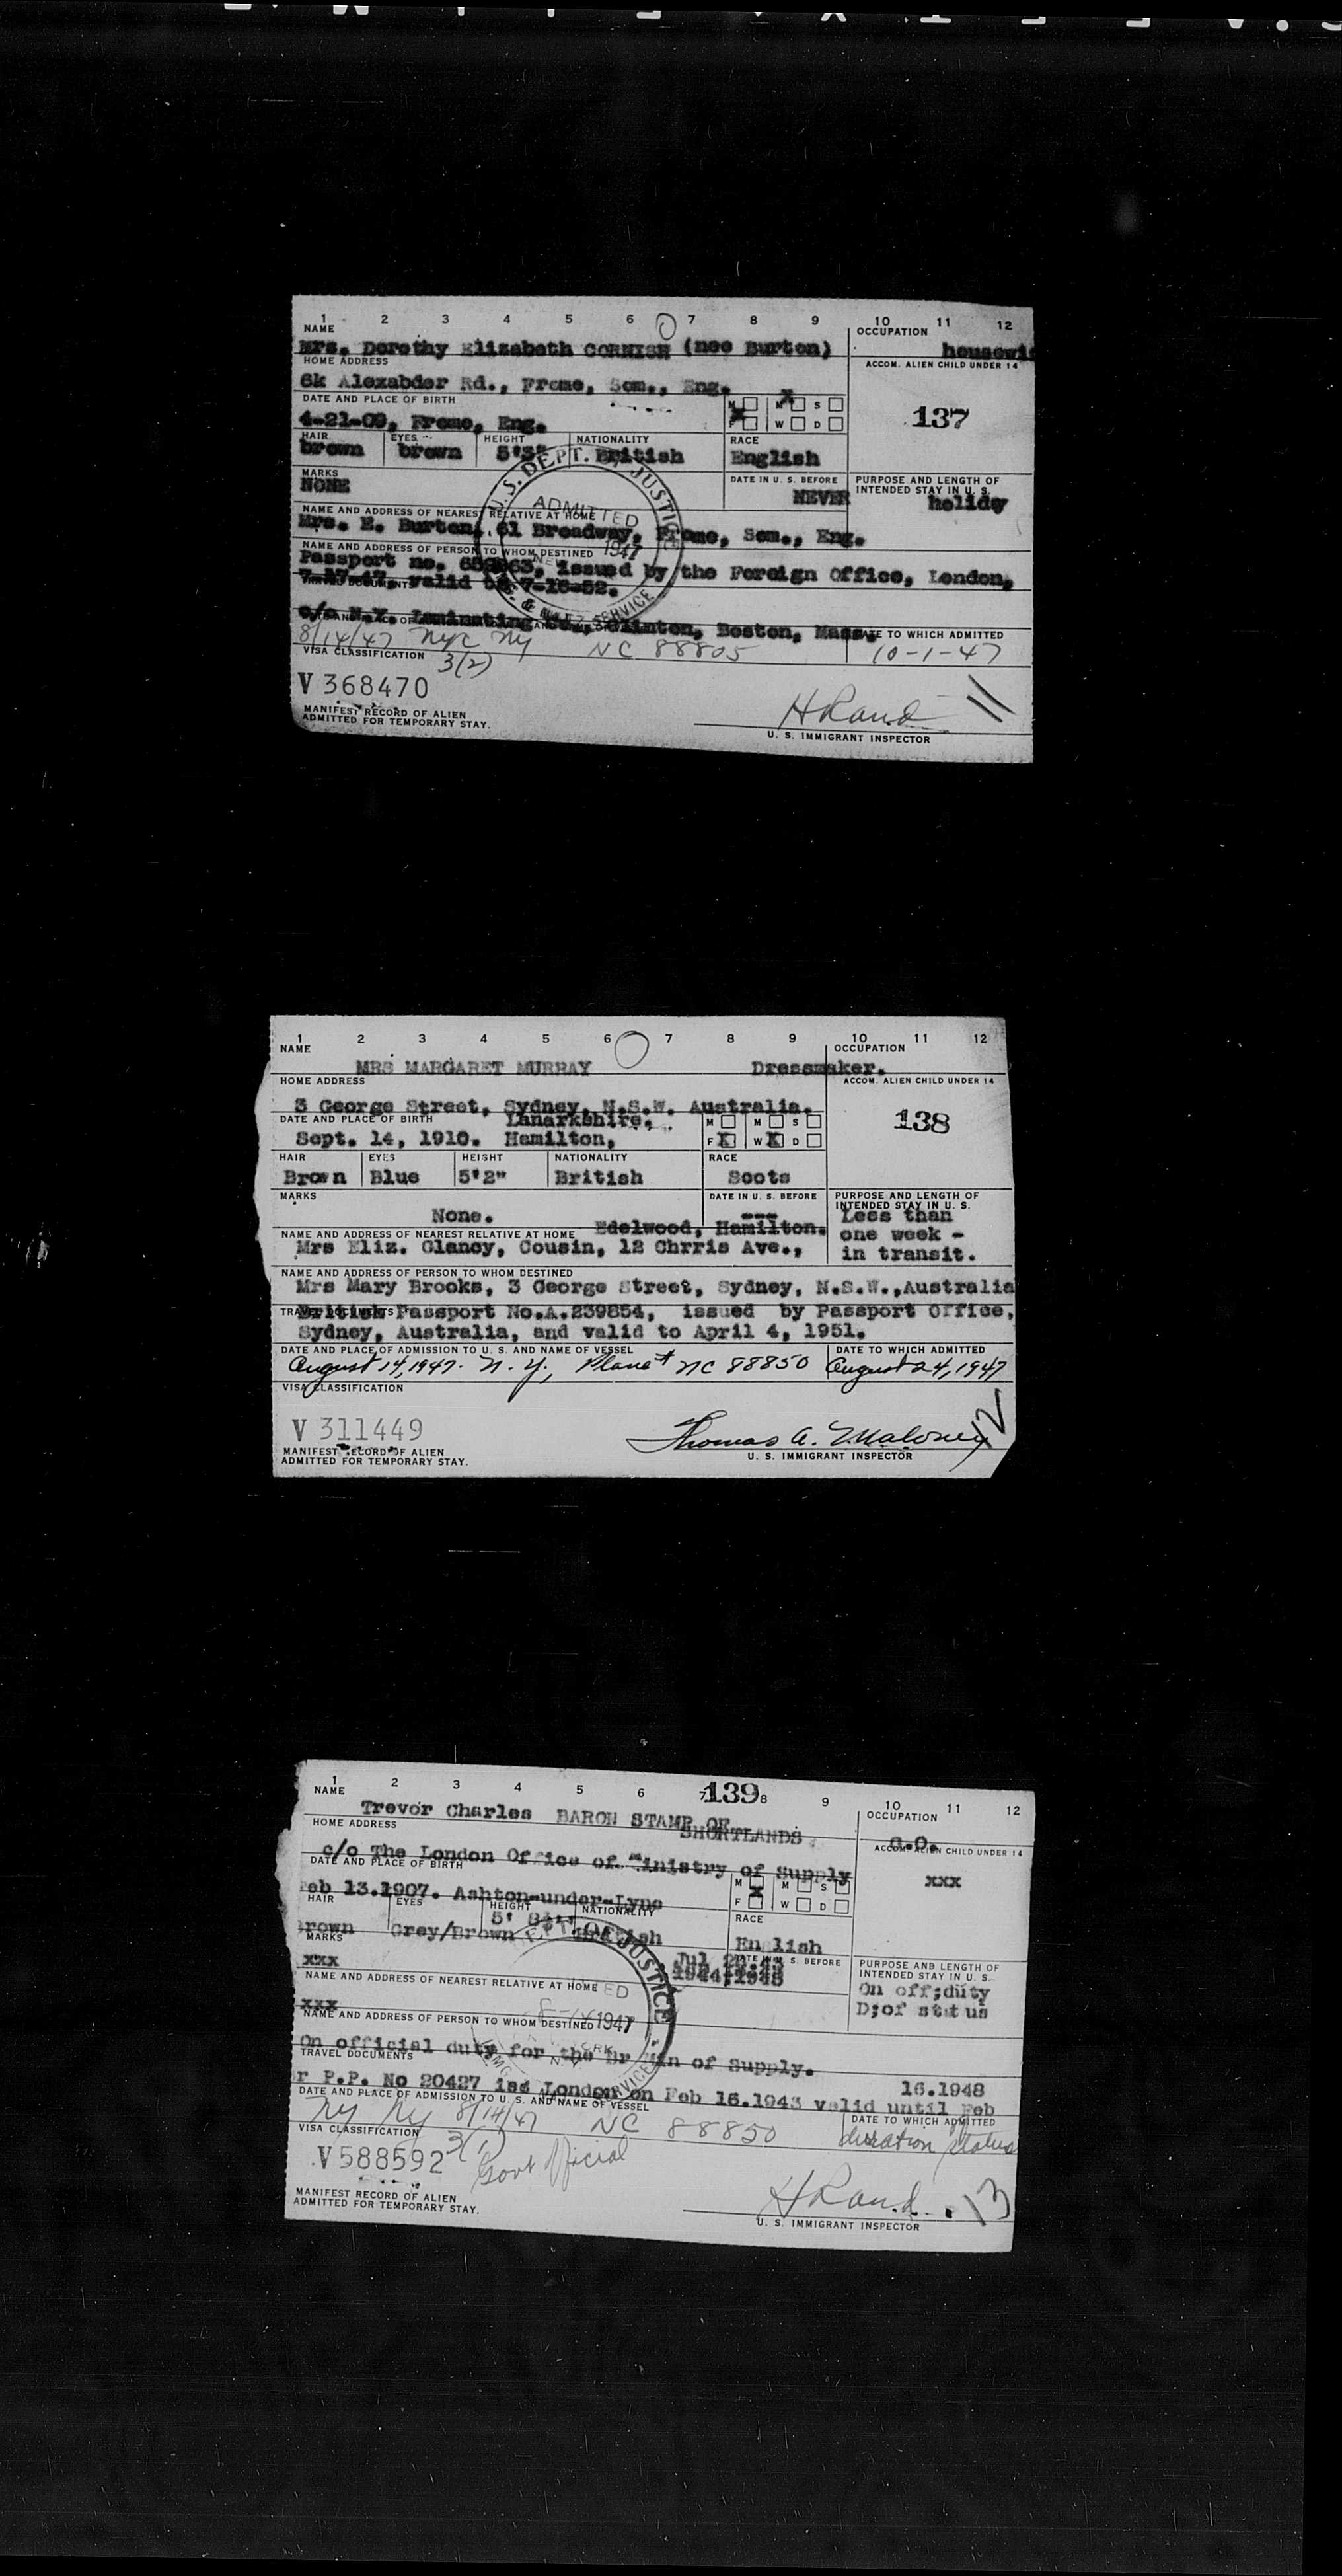 1 2 3 4 5 6 7 8 9 10 11 12
NAME OCCUPATION
Mrs. Dorothy Elizabeth CORNISH (nee Burton) housewi
HOME ADDRESS ACCOM. ALIEN CHILD UNDER 14
6k Alexabder Rd., Frome, Som., Eng.
137
DATE AND PLACE OF BIRTH M M S
4-21-09, Frome, Eng. F W D
HAIR EYES HEIGHT NATIONALITY RACE
brown brown 5'3" British English
MARKS DATE IN U. S. BEFORE PURPOSE AND LENGTH OF
NONE NEVER INTENDED STAY IN U. S.
holiday
NAME AND ADDRESS OF NEAREST RELATIVE AT HOME
Mrs. E. Burton, 61 Broadway, Frome, Som., Eng.
NAME AND ADDRESS OF PERSON TO WHOM DESTINED
Passport no. issued by the Foreign Office, London,
TRAVEL DOCUMENTS
valid to 7-16-52.
U.S. DEPT. OF JUSTICE
ADMITTED
1947
& SERVICE
c/o N.Y. Laminating Clinton, Boston, Mass.
DATE TO WHICH ADMITTED
8/14/47 NYC NY NC 88805 10-1-47
VISA CLASSIFICATION 3(2)
V 368470
H Rand 11
MANIFEST RECORD OF ALIEN
ADMITTED FOR TEMPORARY STAY.
U. S. IMMIGRANT INSPECTOR
1 2 3 4 5 6 7 8 9 10 11 12
NAME OCCUPATION
MRS MARGARET MURRAY Dressmaker.
HOME ADDRESS ACCOM. ALIEN CHILD UNDER 14
3 George Street, Sydney, N.S.W. Australia.
138
DATE AND PLACE OF BIRTH Lanarkshire. M M S
Sept. 14, 1910. Hamilton, F X W X D
HAIR EYES HEIGHT NATIONALITY RACE
Brown Blue 5'2" British Scots
MARKS DATE IN U. S. BEFORE PURPOSE AND LENGTH OF
INTENDED STAY IN U. S.
None. --- Less than
NAME AND ADDRESS OF NEAREST RELATIVE AT HOME Edelwood, Hamilton. one week -
Mrs Eliz. Clancy, Cousin, 12 Chrris Ave., in transit.
NAME AND ADDRESS OF PERSON TO WHOM DESTINED
Mrs Mary Brooks, 3 George Street, Sydney, N.S.W.,Australia
TRAVEL DOCUMENTS
British Passport No.A.239854, issued by Passport Office,
Sydney, Australia, and valid to April 4, 1951.
DATE AND PLACE OF ADMISSION TO U. S. AND NAME OF VESSEL DATE TO WHICH ADMITTED
August 14, 1947. N. Y., Plane # NC 88850 August 24, 1947
VISA CLASSIFICATION
V 311449
Thomas A. Maloney 12
MANIFEST RECORD OF ALIEN
ADMITTED FOR TEMPORARY STAY.
U. S. IMMIGRANT INSPECTOR
1 2 3 4 5 6 7 139 8 9 10 11 12
NAME OCCUPATION
Trevor Charles BARON STAMP OF
SHORTLANDS
HOME ADDRESS C.O.
ACCOM. ALIEN CHILD UNDER 14
c/o The London Office of Ministry of Supply
xxx
DATE AND PLACE OF BIRTH M M S
eb 13.1907. Ashton-under-Lyne F W D
HAIR EYES HEIGHT NATIONALITY RACE
rown Grey/Brown 5' British En lish
MARKS DATE IN U. S. BEFORE PURPOSE AND LENGTH OF
xxx Jul INTENDED STAY IN U. S.
On off;duty
D;of status
NAME AND ADDRESS OF NEAREST RELATIVE AT HOME
xxx
DEPT. OF JUSTICE
8-14 1947
SERVICE
NAME AND ADDRESS OF PERSON TO WHOM DESTINED
On official duty for the Br Min of Supply.
TRAVEL DOCUMENTS
16.1948
r P.P. No 20427 iss London on Feb 16.1943 valid until Feb
DATE AND PLACE OF ADMISSION TO U. S. AND NAME OF VESSEL DATE TO WHICH ADMITTED
NY NY 8/14/47 NC 88850 duration status
VISA CLASSIFICATION 3(1)
V 588592 Govt Official
H Rand. 13
MANIFEST RECORD OF ALIEN
ADMITTED FOR TEMPORARY STAY.
U. S. IMMIGRANT INSPECTOR